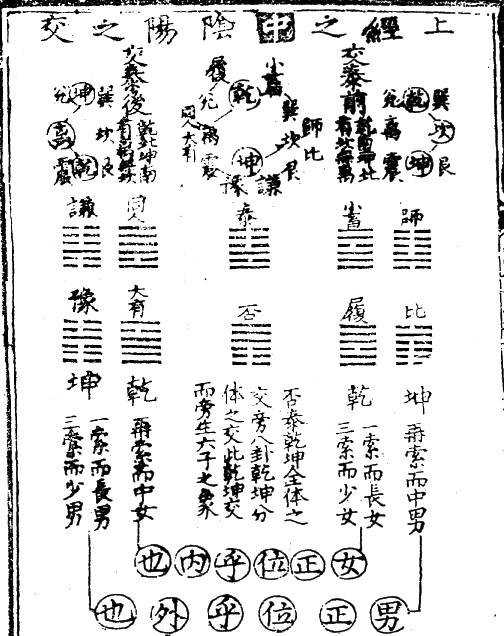 上經之中陰陽之交
巽
坎
艮
乾
坤
兌
離
震
交泰前
乾南坤北
小畜
履
乾
巽
兌
坎
離
師比
艮
震
坤
謙
豫
同人大有
交泰後
乾北坤南
巽
坎
艮
坤
乾
兌
離
震
師
小畜
泰
同人
謙
比
履
否
大有
豫
坤
再索而中男
乾
一索而長女
三索而少女
否泰乾坤全体之
交旁八卦乾坤分
体之交此乾坤交
而旁生六子之象
乾
再索而中女
坤
一索而長男
三索而少男
女正位乎內也
男正位乎外也